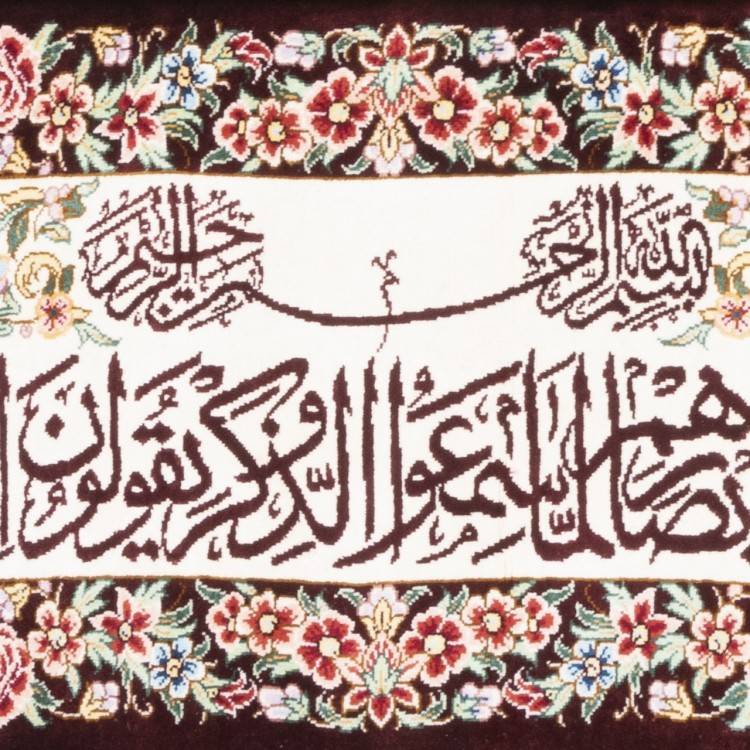 بسم الله الرحمن الرحيم
بصارهم لما سمعوا الذكر ويقولون ا